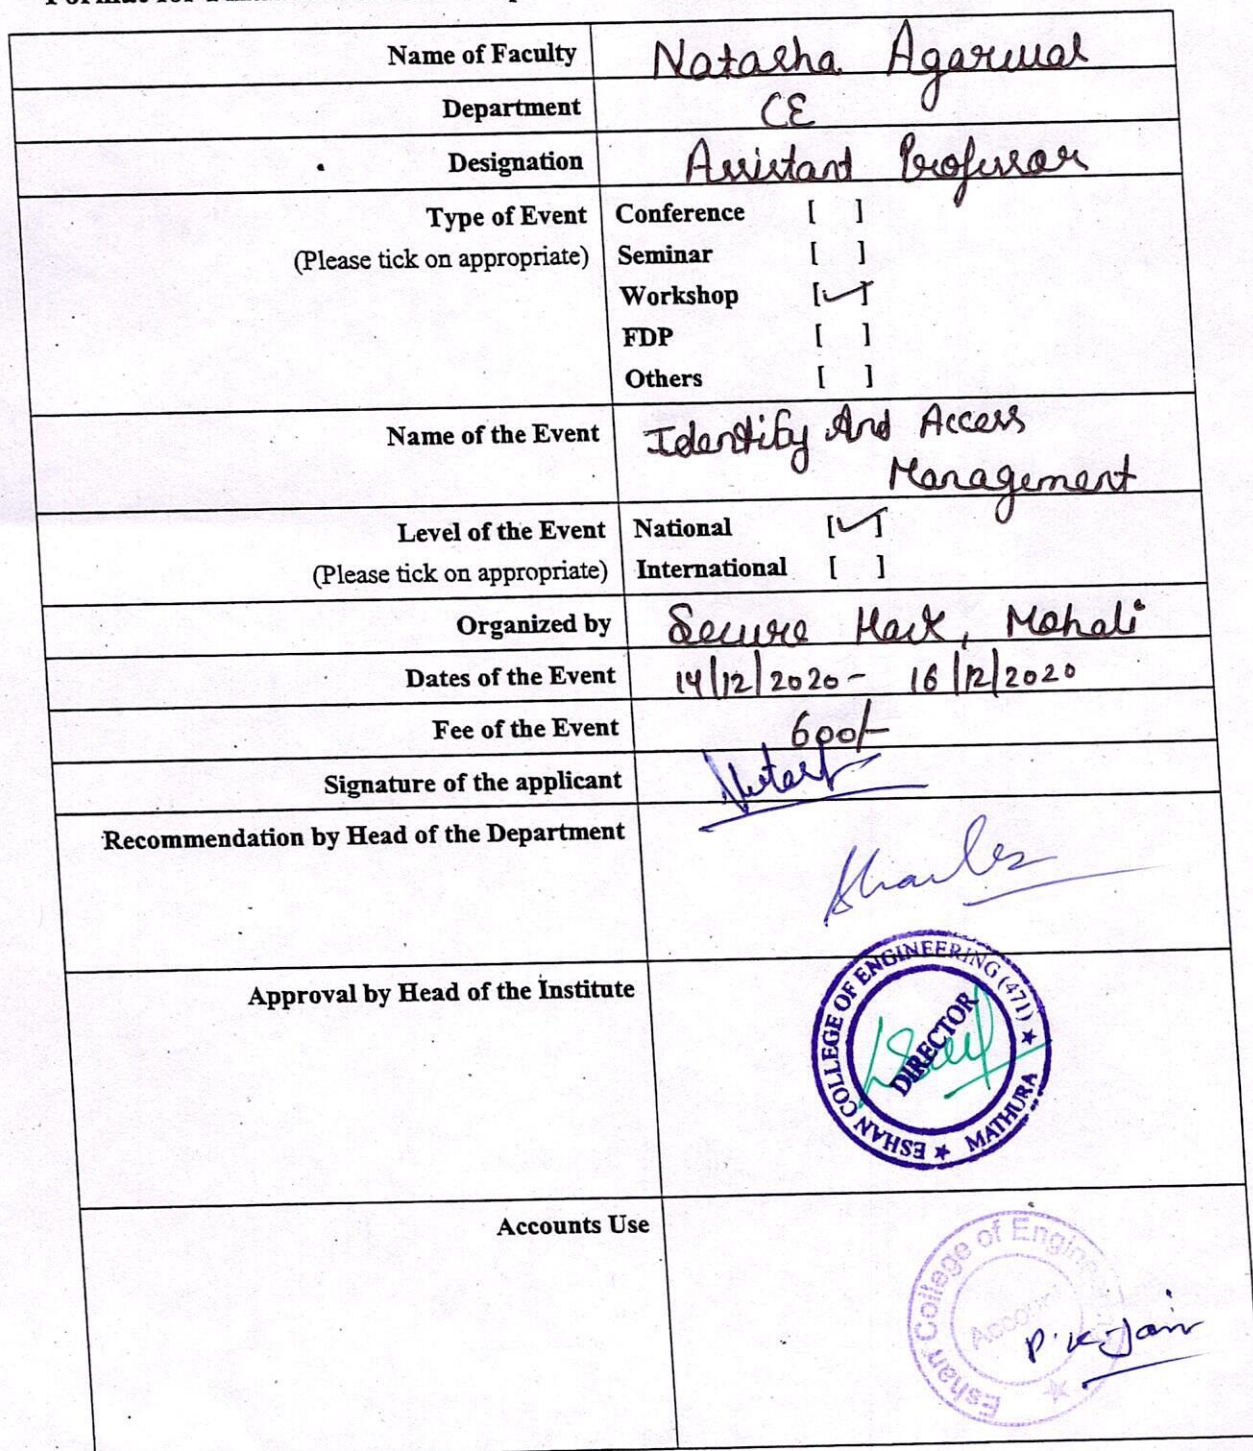 Name of Faculty Natasha Agarwal
Department CE
Designation Assistant Professor
Type of Event Conference [ ]
(Please tick on appropriate) Seminar [ ]
Workshop [✓]
FDP [ ]
Others [ ]
Name of the Event Identity And Access
Management
Level of the Event National [✓]
(Please tick on appropriate) International [ ]
Organized by Secure Hack, Mohali
Dates of the Event 14/12/2020 - 16/12/2020
Fee of the Event 600/-
Signature of the applicant
Recommendation by Head of the Department
Approval by Head of the Institute
ESHAN COLLEGE OF ENGINEERING (471) ★ MATHURA ★
DIRECTOR
Accounts Use
Eshan College of
P.K Jain